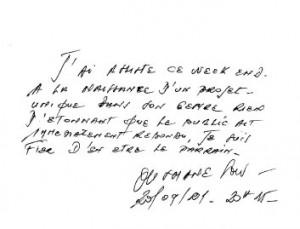 J'ai ASSISTE CE WEEK END.
A LA NAISSANCE D'UN PROJET
UNIQUE DANS SON GENRE RIEN
D'ETONNANT QUE LE PUBLIC AIT
IMMEDIATEMENT REPONDU, JE SUIS
FIER D'EN ETRE LE PARRAIN.
OUSMANE SOW
20/09/01